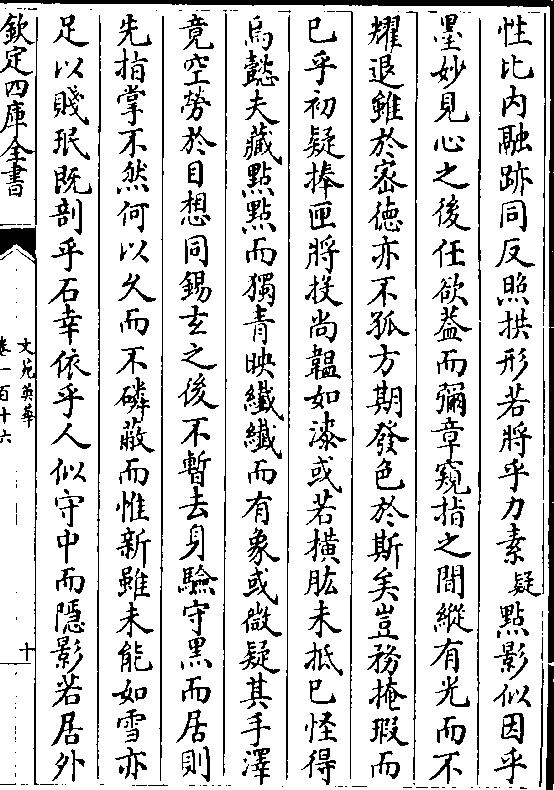 性比内融跡同反照拱形若將乎力素疑點影似因乎
墨妙見心之後任欲蓋而彌章窺指之間縱有光而不
耀退雖於密德亦不孤方期發色於斯矣豈務掩瑕而
已乎初疑捧匣將投尚韞如漆或若橫肱未抵已怪得
烏懿夫藏點點而獨青映纖纖而有象或微疑其手澤
竟空勞於目想同錫玄之後不暫去身驗守黑而居則
先指掌不然何以久而不磷蔽而惟新雖未能如雪亦
足以賤珉既剖乎石幸依乎人似守中而隱影若居外
欽定四庫全書
文苑英華
卷一百十六
十